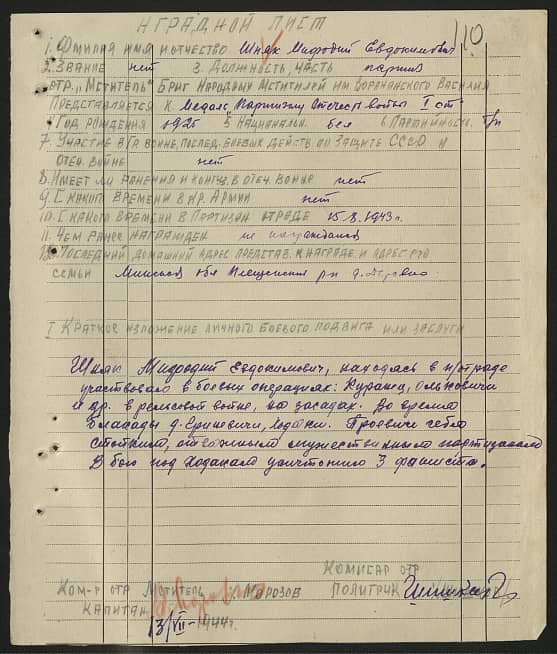 110
НАГРАДНОЙ ЛИСТ
1. Фамилия имя и отчество Шпак Мифодий Евдокимович
2. Звание нет 3. Должность, часть партиз
отр. "Мститель" Бриг Народных Мстителей им Воронянского Василия
Представляется к Медаль "Партизану Отечеств войны I ст"
Год рождения 1925 5 Националън. бел 6 Партийность б/п
7. Участие в гр войне, послед. боевых действ по защите СССР и
отеч. войне нет
8. Имеет ли ранения и контуз. в отеч. войне нет
9. С какого времени в кр. Армии нет
10. С какого времени в партизан отряде 15.8.1943 г.
11. Чем ранее награжден не награждался
12. Последний домашний адрес представ. к награде и адрес его
семьи Минская обл Плещенский рн д.
I Краткое изложение личного боевого подвига или заслуги
Шпак Мифодий Евдокимович, находясь в п/отряде
участвовал в боевых операциях: Куранец, Ольковичи
и др. в рельсовой войне, на засадах. Во время
блакады д. Проевил себя
стойким, отважным мужественным партизаном
В бою под Ходаками уничтожил 3 фашиста.
Комисар отр
Ком-р отр Мститель Морозов Политрук
Капитан
13/VII-1944 г.